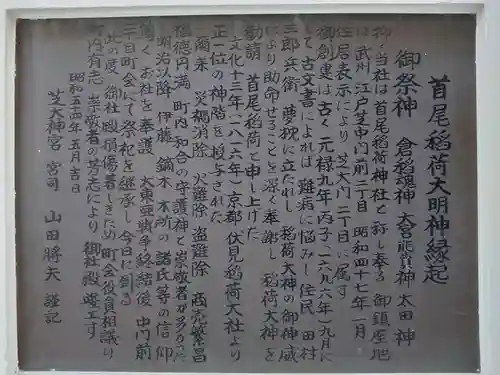 首尾稲荷大明神縁起
御祭神 倉稲魂神 大宮能賣神 太田神
抑々当社は首尾稲荷神社と称し奉る 御鎮座地
は武州江戸芝中門前二丁目 昭和四十七年一月
住居表示により芝大門二丁目に属す
御創建は古く元禄九年丙子(一六九六年)九月に
して古文書によれば 難病に悩みし住民 田村
三郎兵衛 夢枕に立たれし 稲荷大神の御神威
により助命せることを深く奉謝し 稲荷大神を
勧請 首尾稲荷と申し上げた
文化十三年(一八一六年)京都 伏見稲荷大社より
正一位の神階を授与された
爾来 災禍消除 火難除 盗難除 商売繁昌
福徳円満 町内和合の守護神と崇敬者が多かった
明治以降 伊藤 鏑木 本所の諸氏等の信仰
篤く お社を奉護 大東亜戦争終結後 中門前
二丁目町会にて祭祀を継承し今日に到る
此の度 御社殿損傷著しきため町会役員相議り
町内有志 崇敬者の芳志により 御社殿竣工す
昭和五四年五月吉日
芝大神宮 宮司 山田將夫 謹記